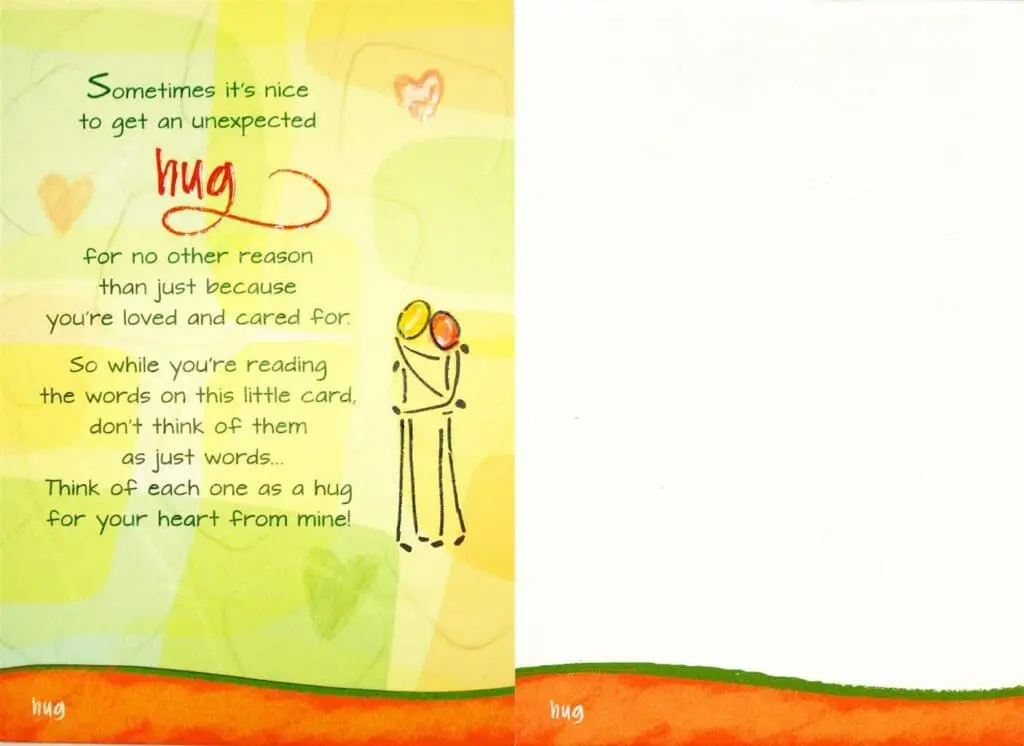 Sometimes it's nice
to get an unexpected
hug
for no other reason
than just because
you're loved and cared for.
So while you're reading
the words on this little card,
don't think of them
as just words...
Think of each one as a hug
for your heart from mine!
hug
hug